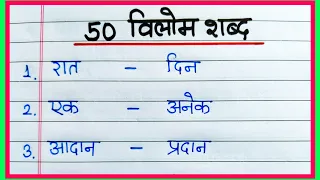 50 विलोम शब्द
1. रात – दिन
2. एक – अनेक
3. आदान – प्रदान